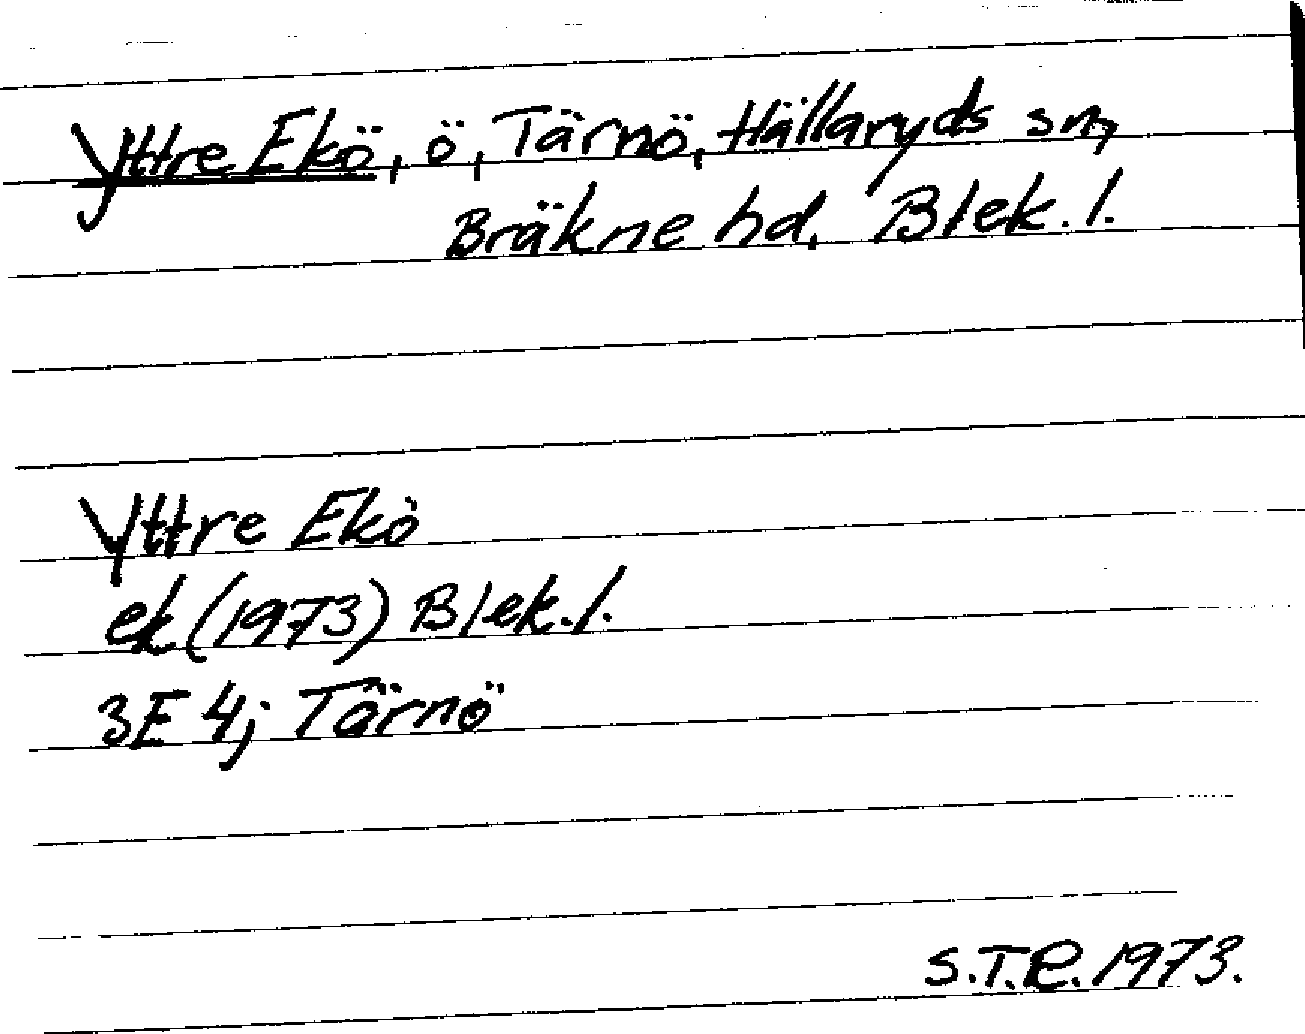 Yttre Ekö, ö, Tärnö, Hällaryds sn,
Bräkne hd, Blek. l.
Yttre Ekö
ek (1973) Blek. l.
3E 4j Tärnö
S.T.R. 1973.